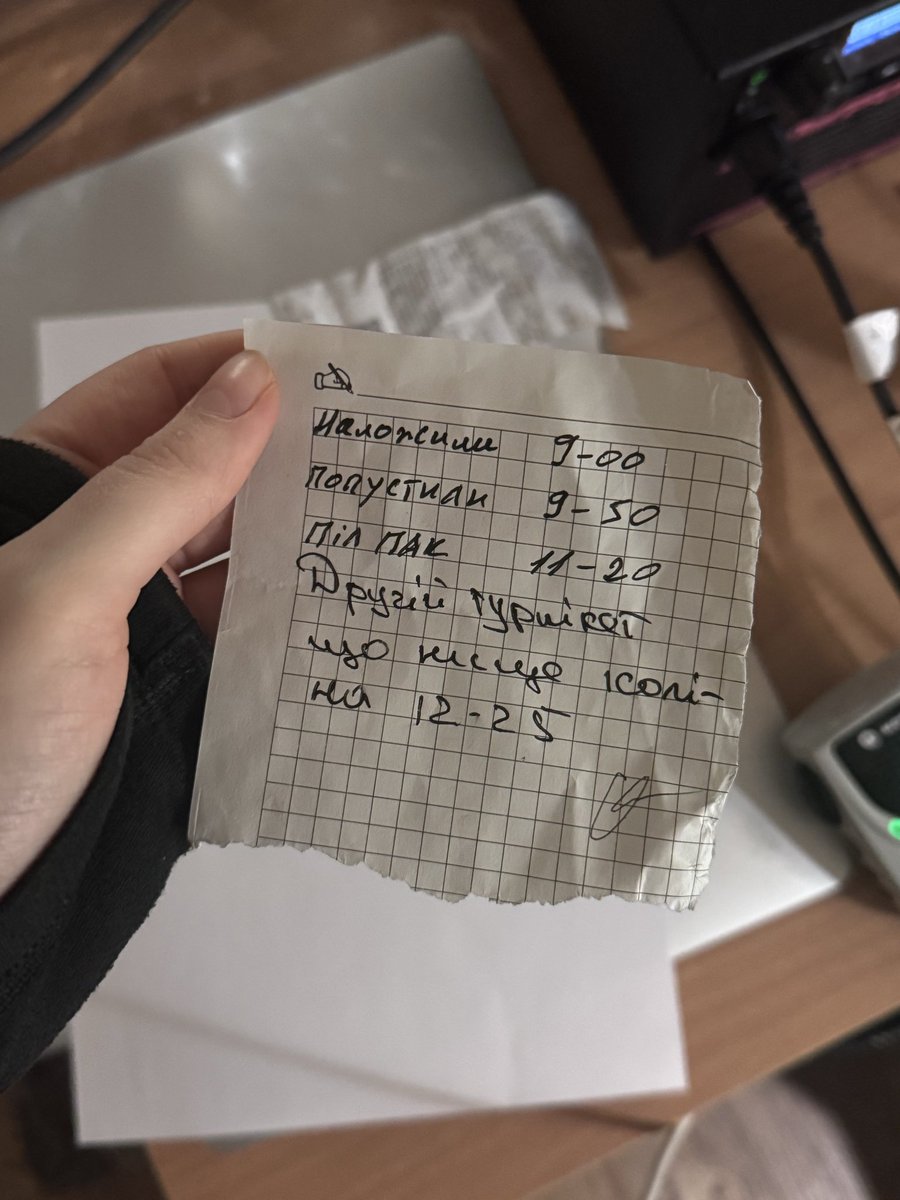 Наложили 9-00
Попустили 9-50
Піл ПАК 11-20
Другій турнікет
що нище коліна 12-25